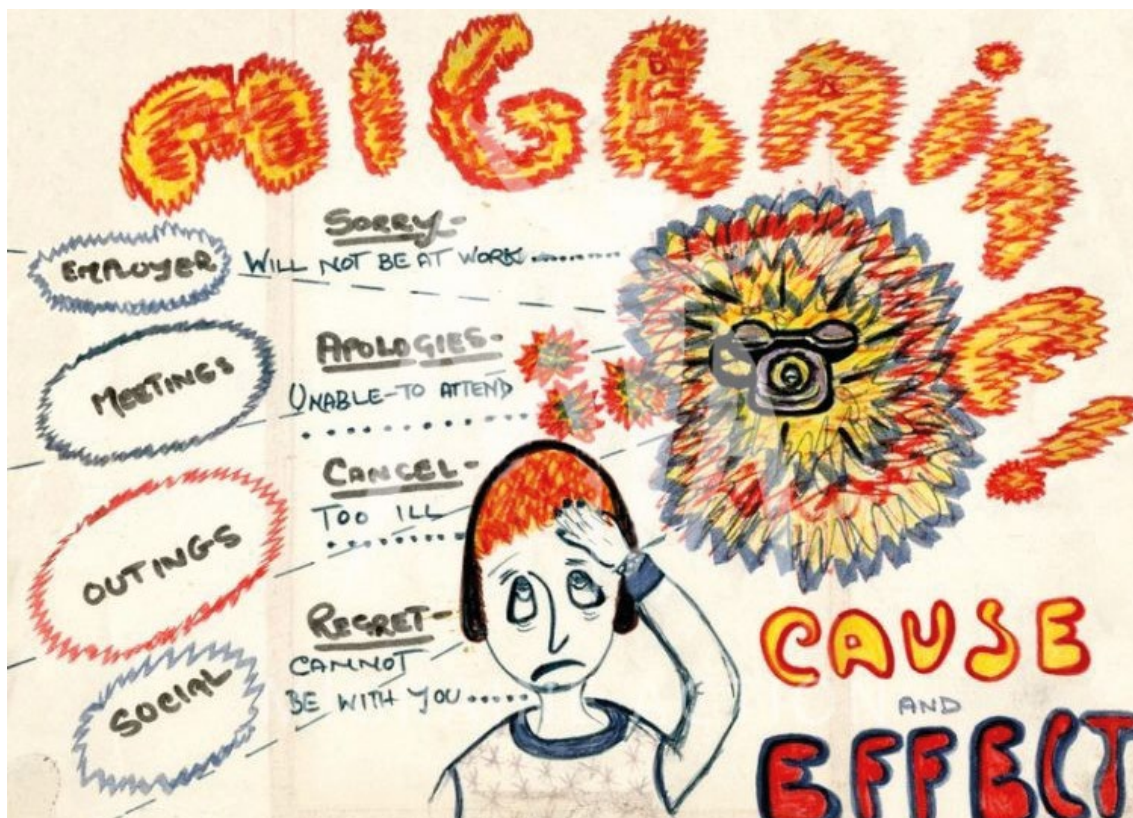 MiGRAiNE!
EMPLOYER
SORRY-
WILL NOT BE AT WORK..........
MEETINGS
APOLOGIES-
UNABLE-TO ATTEND
................
OUTINGS
CANCEL-
TOO ILL
............
SOCIAL
REGRET-
CANNOT
BE WITH YOU......
CAUSE
AND
EFFECT